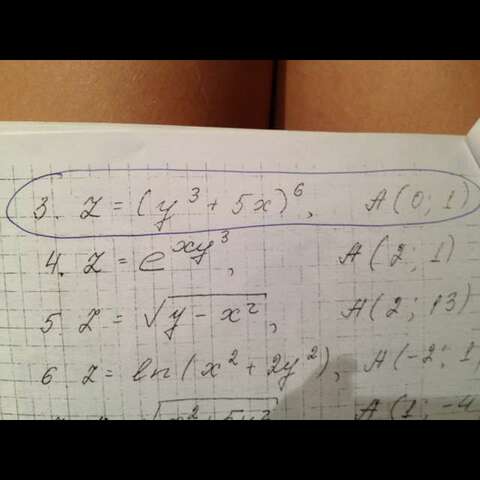 3. Z = (y³ + 5x)⁶, A(0; 1)
4. Z = e^{xy³}, A(2; 1)
5. Z = √(y - x²), A(2; 13)
6 Z = ln(x² + 2y²), A(-2; 1
A(1; -4